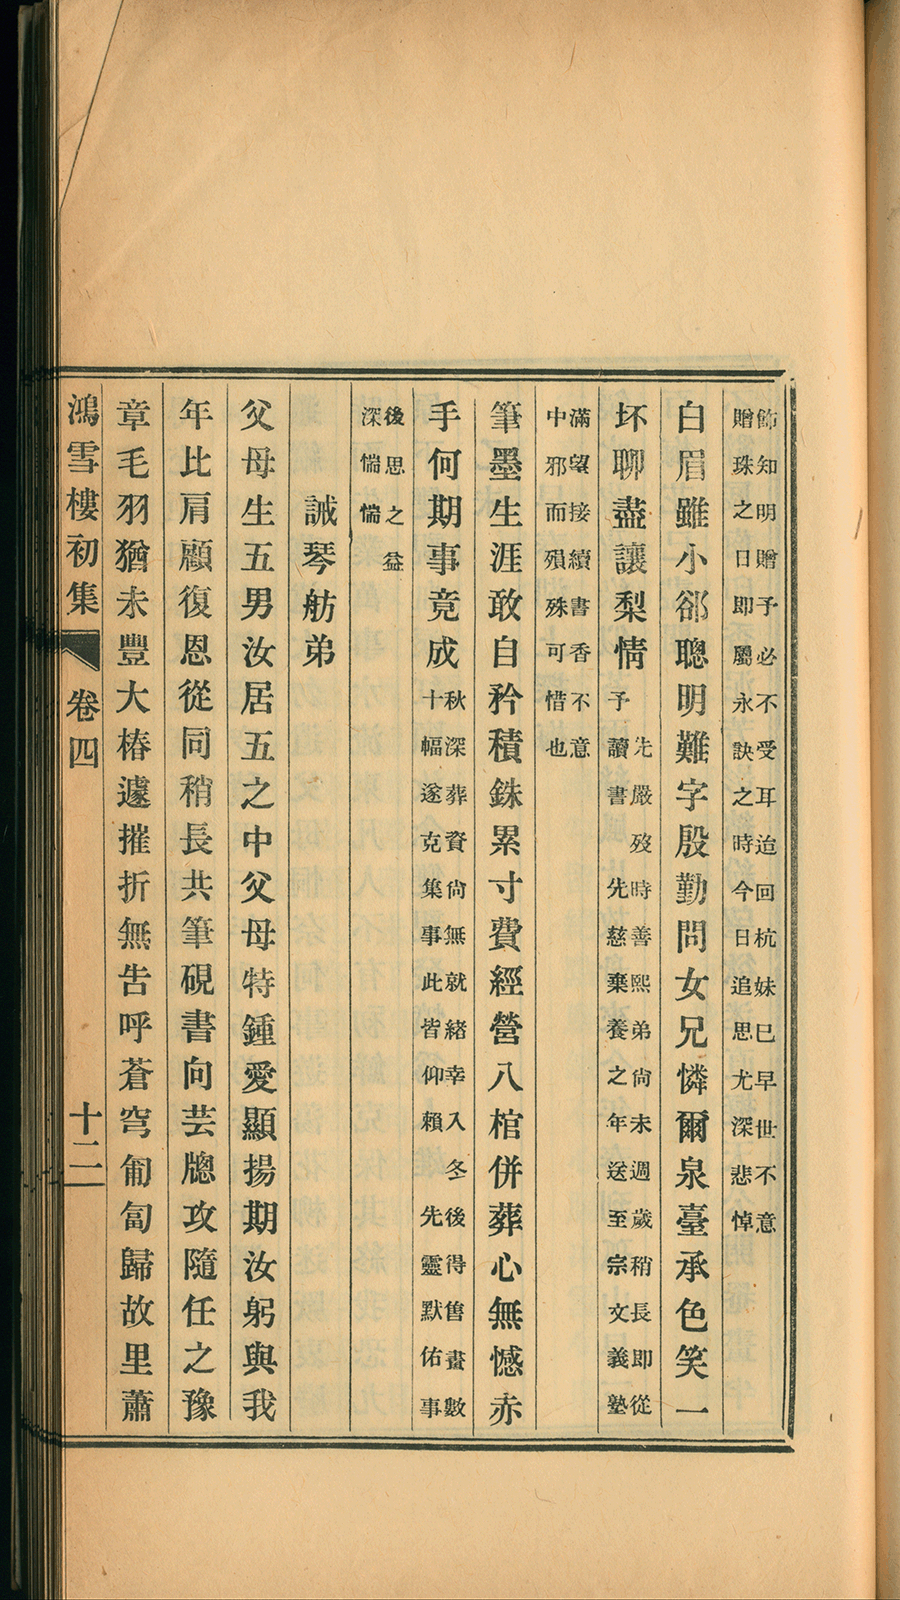 飾知明贈予必不受耳迨回杭妹巳早世不意
贈珠之日即屬永訣之時今日追思尤深悲悼
白眉雖小郤聰明難字殷勤問女兄憐爾泉臺承色笑一
坏聊盡讓梨情
先嚴歿時善熙弟尙未週歲稍長即從
予讀書 先慈棄養之年送至宗文義塾
滿望接續書香不意
中邪而殞殊可惜也
筆墨生涯敢自矜積銖累寸費經營八棺併葬心無憾赤
手何期事竟成
秋深葬資尙無就緒幸入冬後得售畫數
十幅遂克集事此皆仰賴 先靈默佑事
後思之益
深惴惴
誡琴舫弟
父母生五男汝居五之中父母特鍾愛顯揚期汝躬與我
年比肩顧復恩從同稍長共筆硯書向芸牕攻隨任之豫
章毛羽猶未豐大椿遽摧折無告呼蒼穹匍匐歸故里蕭
鴻雪樓初集 卷四 十二